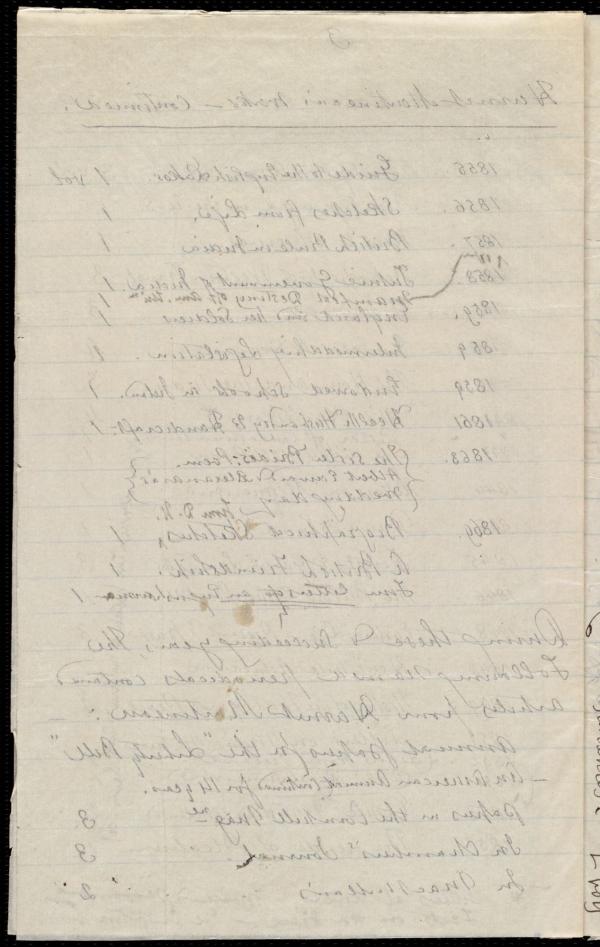 3
Harriet Martineau's Works – Continued.
1855. Guide to the English Lakes 1 vol
1856. Sketches from Life. 1
1857. British Rule in India 1
1858. Future Government of India. 1
Pamphlet Destiny of Am. Un 1
1859. England and her Soldiers 1
1859 Intermeddling Legislation. 1
1859 Endowed Schools in Irelnd. 1
1861 Health Husbandry & Handicraft. 1
1863. The Sister Brides: Poem.
Albert Edward & Alexandra's
Wedding day
from D.N.
1869. Biographical Sketches, 1
A British Friendship. 1
Four letters on 1
During these & succeeding years, the
following named periodicals contained
articles from Harriet Martineau:
Annual papers for the "Liberty Bell"
– An American Annual continued for 14 years.
Papers in the Cornhill Magne 3
In Chambers's Journal. 3
In Macmillan's 2